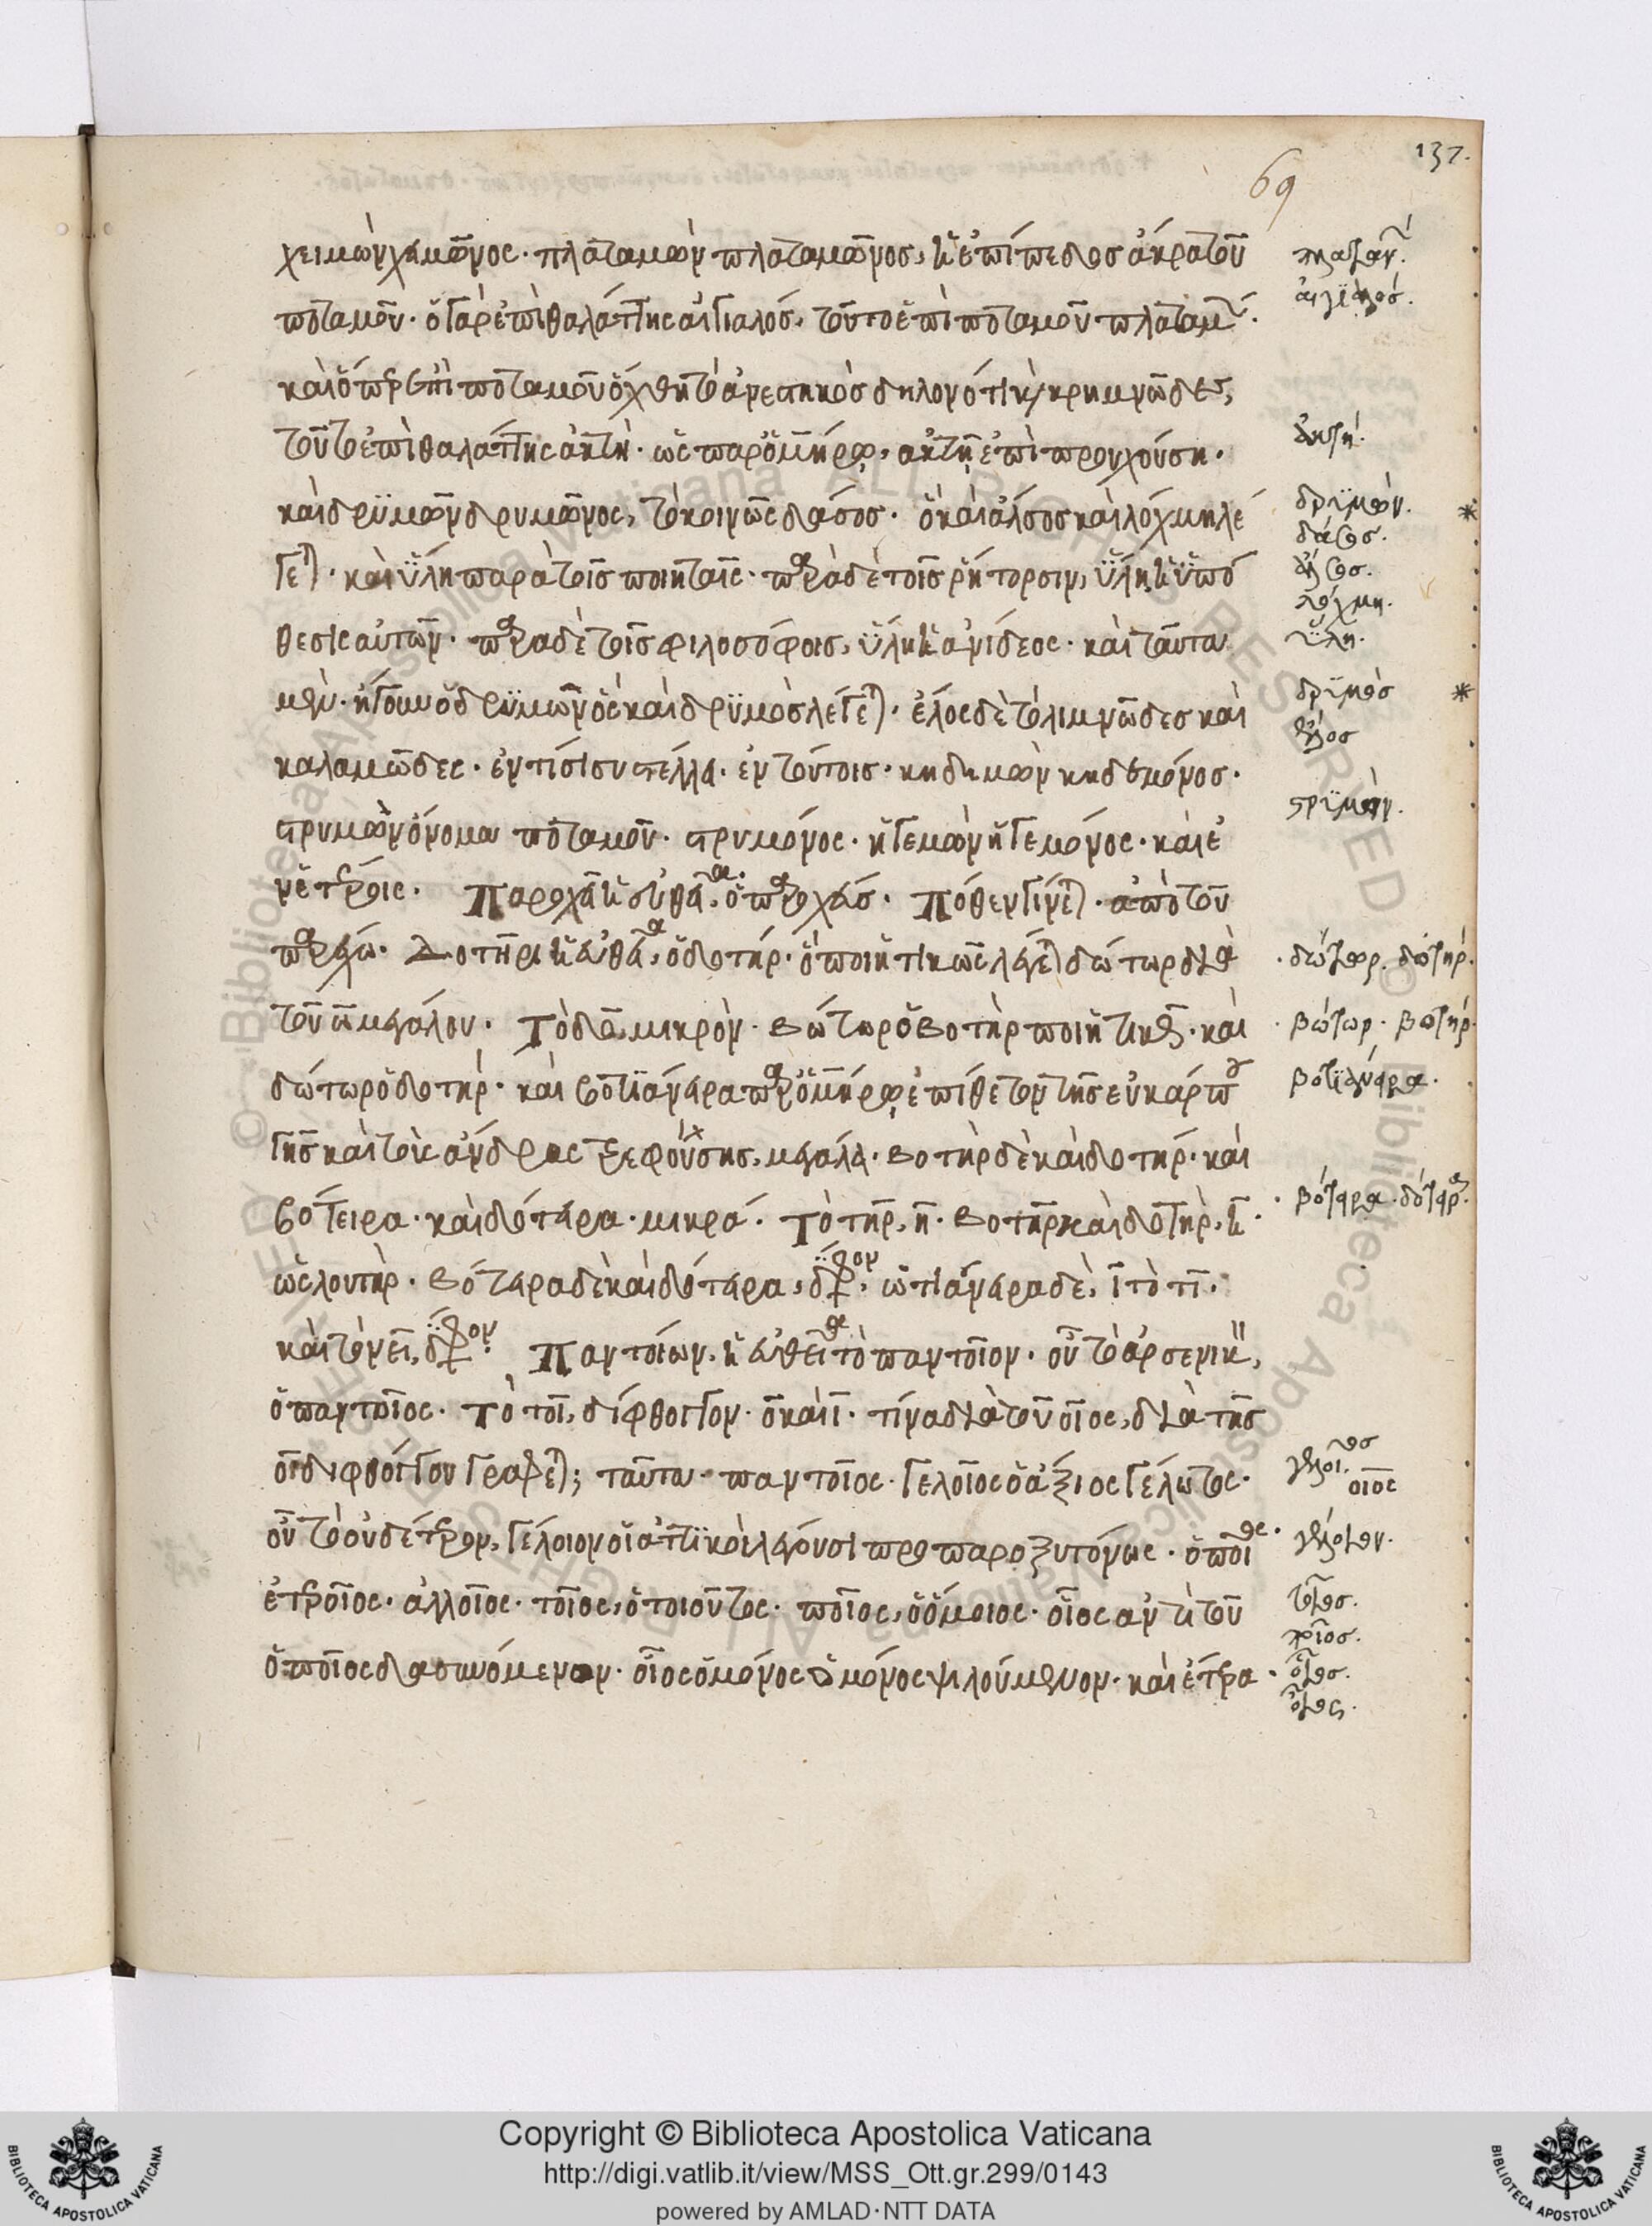 137.
69
χειμὼν χειμῶνος· πλαταμὼν πλαταμῶνος, ἡ ἐπίπεδος ἄκρα τοῦ
ποταμοῦ· ὃ γὰρ ἐπὶ θαλάττης αἰγιαλός, τοῦτο ἐπὶ ποταμοῦ πλαταμ
καὶ ὅπερ ἐπὶ ποταμοῦ ὄχθη τὸ ἀνεστηκὸς δηλονότι κρημνῶδες,
τοῦτο ἐπὶ θαλάττης ἀκτή· ὡς παρ' ὁμήρῳ, ἀκτῇ ἐπὶ προυχούσῃ·
καὶ δρυμῶν δρυμῶνος, τὸ κοινῶς δάσος· ὃ καὶ ἄλσος καὶ λόχμη λέ
γεται· καὶ ὕλη παρὰ τοῖς ποιηταῖς· παρὰ δὲ τοῖς ῥήτορσιν, ὕλη ἡ ὑπό
θεσις αὐτῶν· παρὰ δὲ τοῖς φιλοσόφοις, ὕλη ἡ ἀνίδεος· καὶ ταῦτα
μὲν· δρυμῶν ὃς καὶ δρυμὸς λέγεται· ἕλος δὲ τὸ λιμνῶδες καὶ
καλαμῶδες· ἐν τούτοις· κηδεμὼν κηδεμόνος·
στρυμὼν ὄνομα ποταμοῦ· στρυμόνος· ἡγεμὼν ἡγεμόνος· καὶ ἐ
Παροχῆ πόθεν γίνεται· ἀπὸ τοῦ
παρέχω· Δοτῆρι ὁ δοτήρ· ὃ ποιητικῶς λέγεται δώτωρ διὰ
τοῦ ω μεγάλου· Τὸ δο μικρόν· βώτωρ ὁ βοτὴρ ποιητικῶς· καὶ
δώτωρ ὁ δοτήρ· καὶ βωτιάνειρα παρ' ὁμήρῳ ἐπίθετον τῆς εὐκάρπου
γῆς καὶ τοὺς ἄνδρας τρεφούσης, μεγάλα· βοτὴρ δὲ καὶ δοτήρ· καὶ
βότειρα· καὶ δότειρα· μικρά· Τὸ τηρ, η· βοτὴρ καὶ δοτὴρ,
ὡς λουτήρ· βότειρα δὲ καὶ δότειρα, δίφθογγον, βωτιάνειρα δὲ, ι τὸ τι·
καὶ τὸ νει, δίφθογγον· Παντοίων, ἡ εὐθεῖα τὸ παντοῖον· οὗ τὸ ἀρσενικὸν,
ὁ παντοῖος· Τὸ τοι, δίφθογγον· ο καὶ ι· τίνα διὰ τοῦ οιος, διὰ τῆς
οι διφθόγγου γράφεται; ταῦτα· παντοῖος· γελοῖος ὁ ἄξιος γέλωτος·
οὗ τὸ οὐδέτερον, γέλοιον οἱ ἀττικοὶ λέγουσι προπαροξυτόνως· ὁποῖος
ἑτεροῖος· ἀλλοῖος· τοῖος, ὁ τοιοῦτος· ποῖος, ὁ ὅμοιος· οἷος ἀντὶ τοῦ
ὁποῖος δασυνόμενον· οἶος ὁ μόνος ψιλούμενον· καὶ ἕτερα·
πλαταμ
αἰγιαλός.
ἀκτή.
δρυμών.
δάσος.
ἄλσος.
λόχμη.
ὕλη.
δρυμός
ἕλος
στρυμών.
δώτωρ. δοτήρ.
βώτωρ. βοτήρ.
βωτιάνειρα.
βότειρα. δότειρα.
γελοῖος
οιος
γέλοιον.
τοῖος.
ποῖος.
οἷος.
οἶος.
© Biblioteca Apostolica Vaticana ALL RIGHTS RESERVED
Copyright © Biblioteca Apostolica Vaticana
http://digi.vatlib.it/view/MSS_Ott.gr.299/0143
powered by AMLAD·NTT DATA
BIBLIOTECA APOSTOLICA VATICANA
BIBLIOTECA APOSTOLICA VATICANA